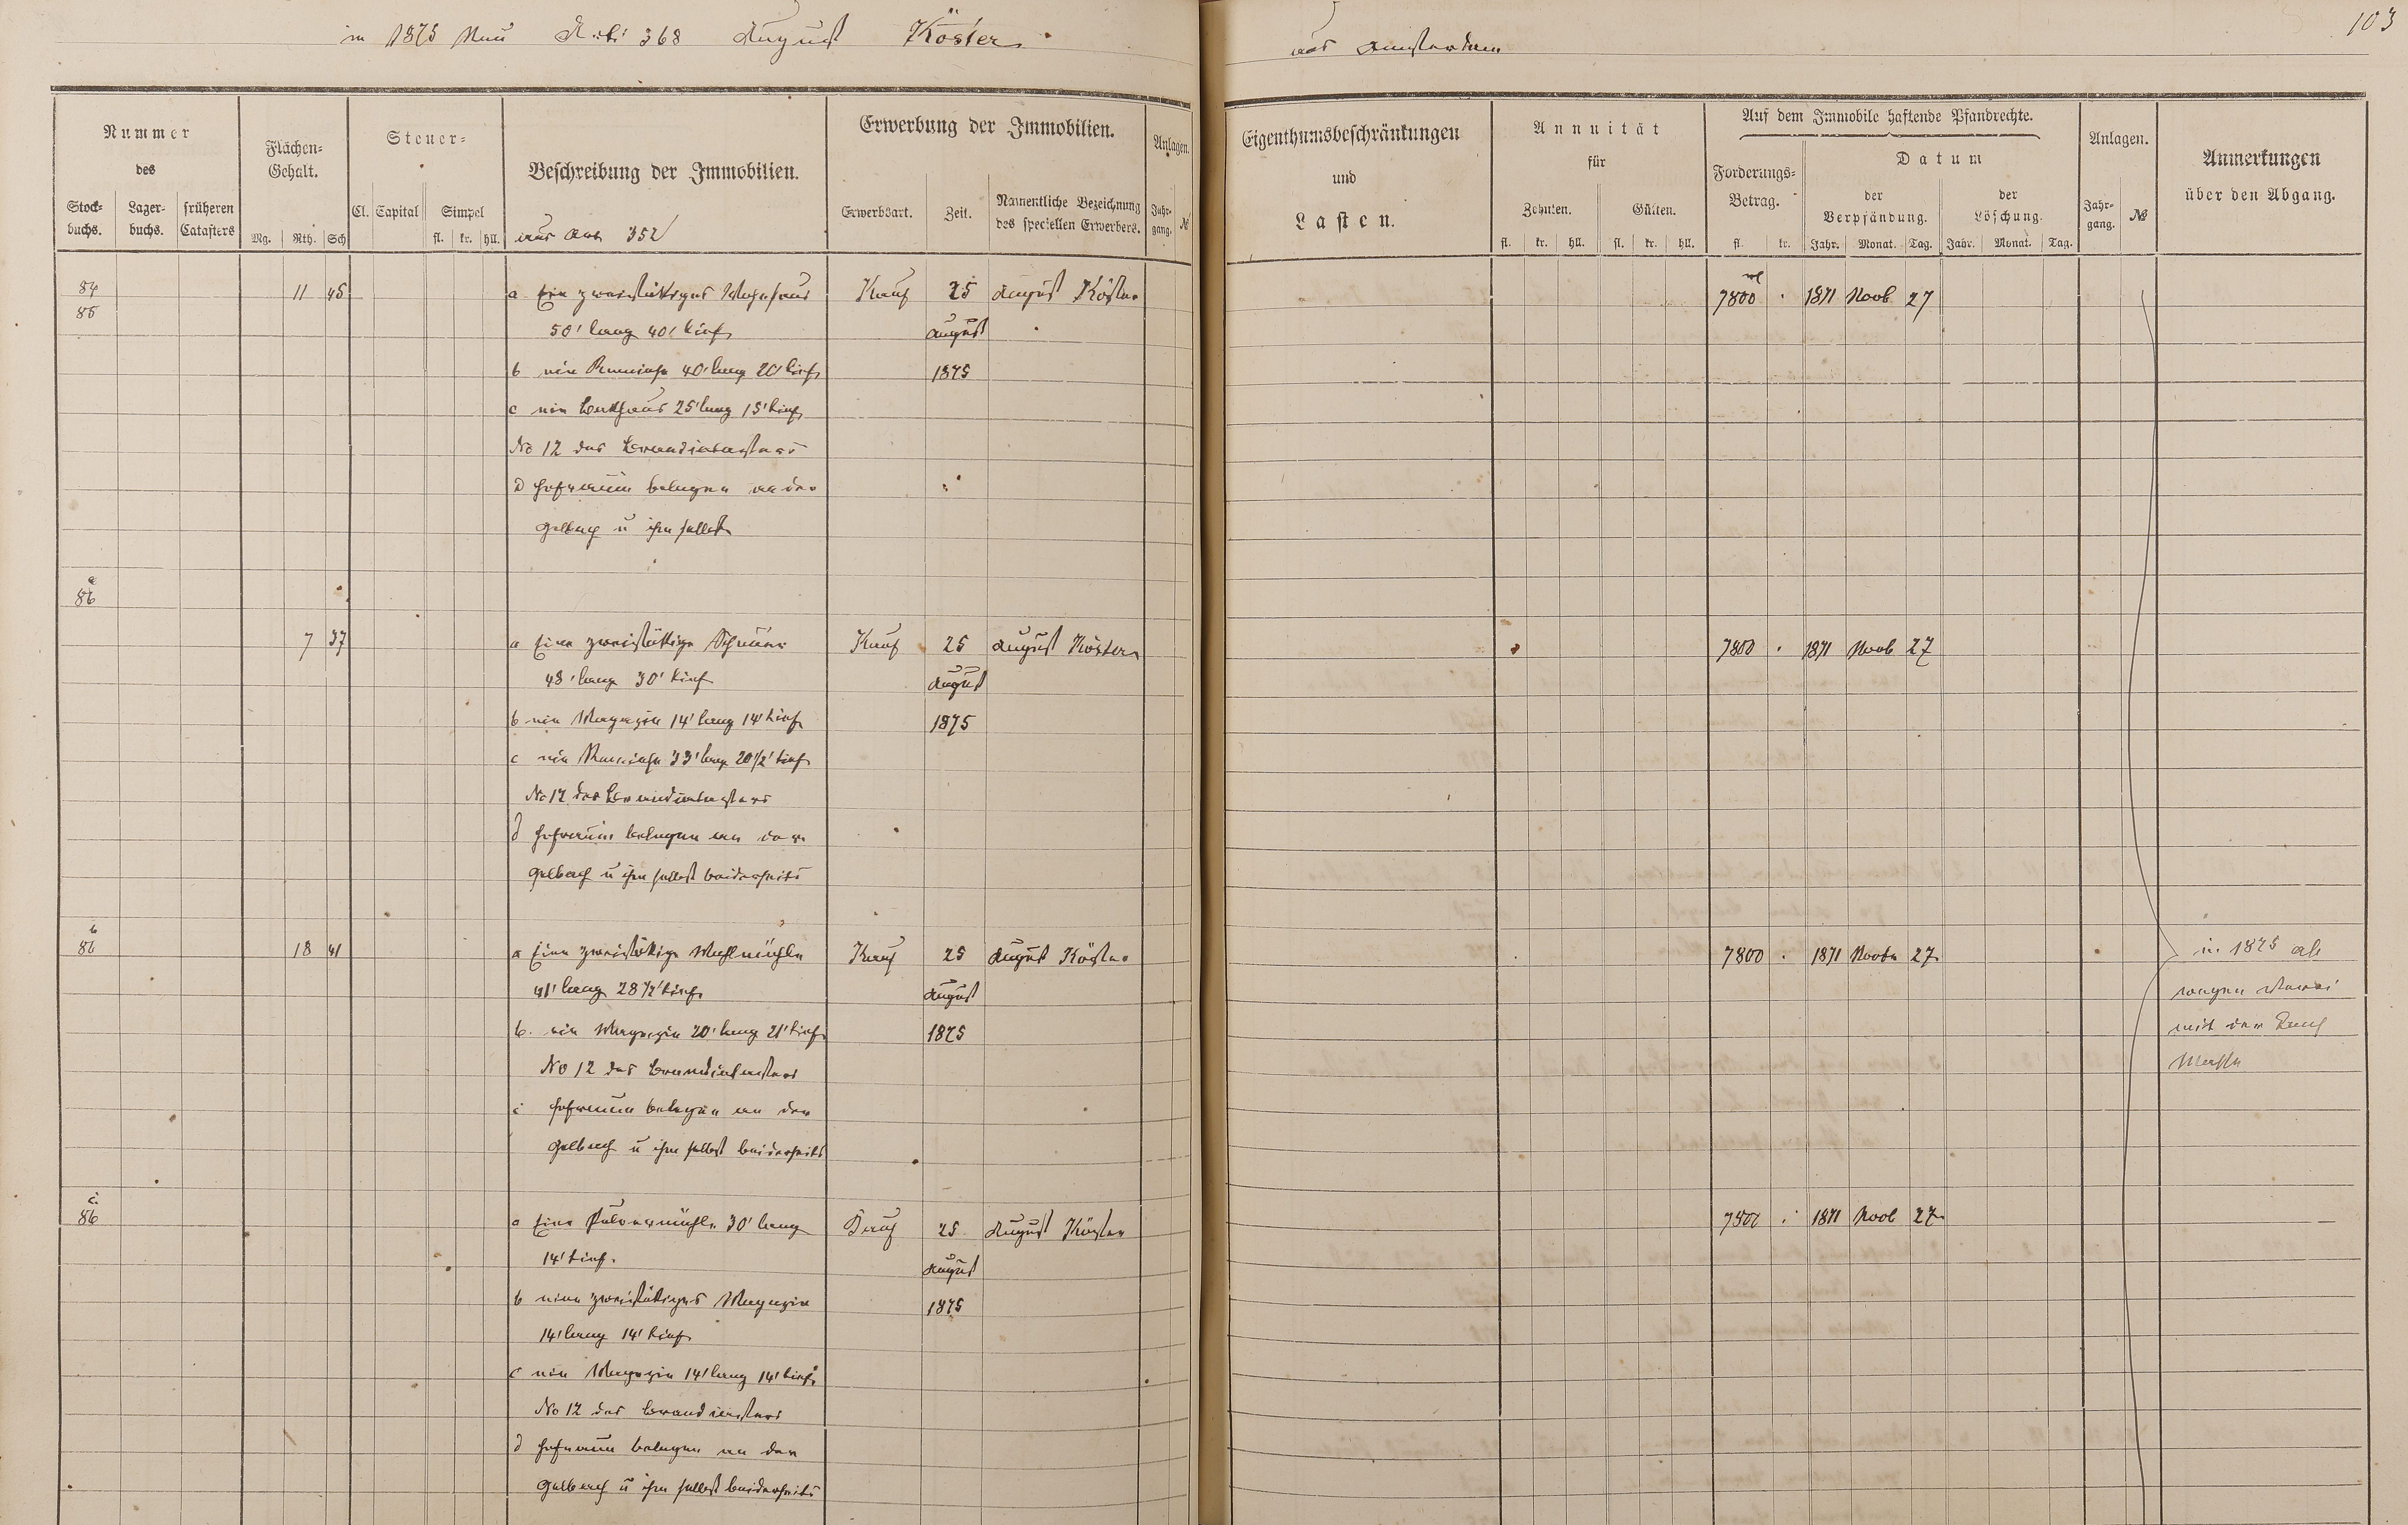 in 1875 Neu Art: 368 August Köster
aus Amsterdam
103
Nummer
des
Stock-
buchs.
Lager-
buchs.
früheren
Catasters
Flächen-
Gehalt.
Mg. Rth. Sch
Steuer-
Cl. Capital Simpel
fl. kr. hll.
Beschreibung der Immobilien.
aus Art 352
Erwerbung der Immobilien.
Erwerbsart. Zeit.
Namentliche Bezeichnung
des speciellen Erwerbers.
Anlagen.
Jahr-
gang. №
Eigenthumsbeschränkungen
und
Lasten.
Annuität
für
Zehnten. Gülten.
fl. kr. hll. fl. kr. hll.
Auf dem Immobile haftende Pfandrechte.
Forderungs-
Betrag.
fl. kr.
Datum
der
Verpfändung.
Jahr. Monat. Tag.
der
Löschung.
Jahr. Monat. Tag.
Anlagen.
Jahr-
gang. №
Anmerkungen
über den Abgang.
84 11 45 a Ein zweistöckiges Wohnhaus Kauf 25 August Köster 7800 1871 Novb 27
85 50' lang 40' tief August
b ein Remise 40' lang 20' tief 1875
c ein Backhaus 25' lang 15' tief
No 12 des Brandcatasters
d Hofraum belegen an der
Gelbach u ihm selbst
a
86
7 37 a Eine zweistöckige Scheuer Kauf 25 August Köster 7800 1871 Novb 27
48' lang 30' tief August
b ein Magazin 14' lang 14' tief 1875
c ein Remise 33' lang 20 1/2' tief
No 12 des Brandcatasters
d Hofraum belegen an der
Gelbach u ihm selbst beiderseits
b
86 18 41 a Eine zweistöckige Mahlmühle Kauf 25 August Köster 7800 1871 Novbr 27
41' lang 28 1/2' tief August
b. ein Magazin 20' lang 21' tief 1875
No 12 des Brandcatasters
c Hofraum belegen an der
Gelbach u ihm selbst beiderseits
in 1875 ab
wegen
mit der
Masse
c.
86 a Eine Pulvermühle 30' lang Kauf 25 August Köster 7800 1871 Novb 27
14' tief. August
b einen zweistöckiges Magazin 1875
14' lang 14' tief
c ein Magazin 14' lang 14' tief
No 12 des
d Hofraum belegen an der
Gelbach u ihm selbst beiderseits